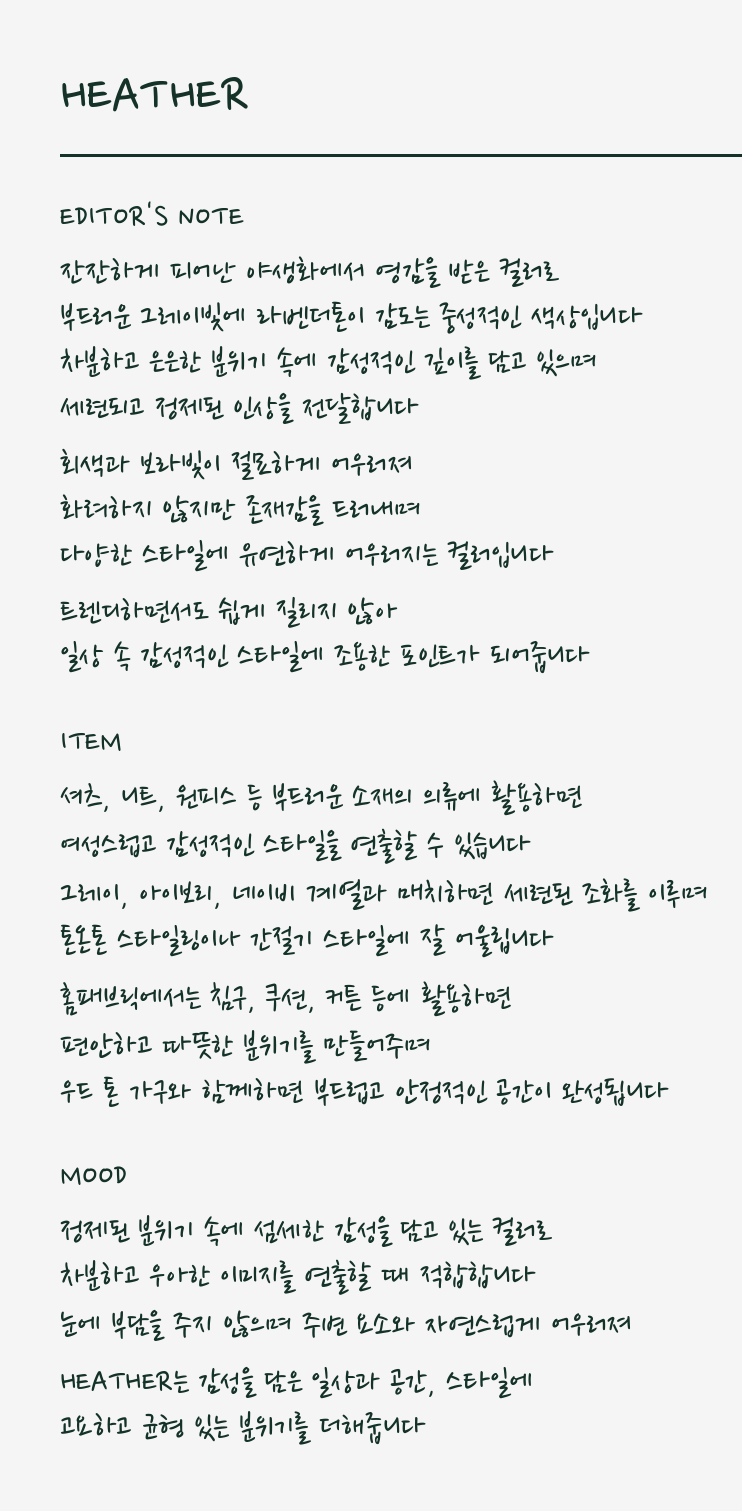 HEATHER
EDITOR'S NOTE
잔잔하게 피어난 야생화에서 영감을 받은 컬러로
부드러운 그레이빛에 라벤더톤이 감도는 중성적인 색상입니다
차분하고 은은한 분위기 속에 감성적인 깊이를 담고 있으며
세련되고 정제된 인상을 전달합니다
회색과 보라빛이 절묘하게 어우러져
화려하지 않지만 존재감을 드러내며
다양한 스타일에 유연하게 어우러지는 컬러입니다
트렌디하면서도 쉽게 질리지 않아
일상 속 감성적인 스타일에 조용한 포인트가 되어줍니다
ITEM
셔츠, 니트, 원피스 등 부드러운 소재의 의류에 활용하면
여성스럽고 감성적인 스타일을 연출할 수 있습니다
그레이, 아이보리, 네이비 계열과 매치하면 세련된 조화를 이루며
톤온톤 스타일링이나 간절기 스타일에 잘 어울립니다
홈패브릭에서는 침구, 쿠션, 커튼 등에 활용하면
편안하고 따뜻한 분위기를 만들어주며
우드 톤 가구와 함께하면 부드럽고 안정적인 공간이 완성됩니다
MOOD
정제된 분위기 속에 섬세한 감성을 담고 있는 컬러로
차분하고 우아한 이미지를 연출할 때 적합합니다
눈에 부담을 주지 않으며 주변 요소와 자연스럽게 어우러져
HEATHER는 감성을 담은 일상과 공간, 스타일에
고요하고 균형 있는 분위기를 더해줍니다